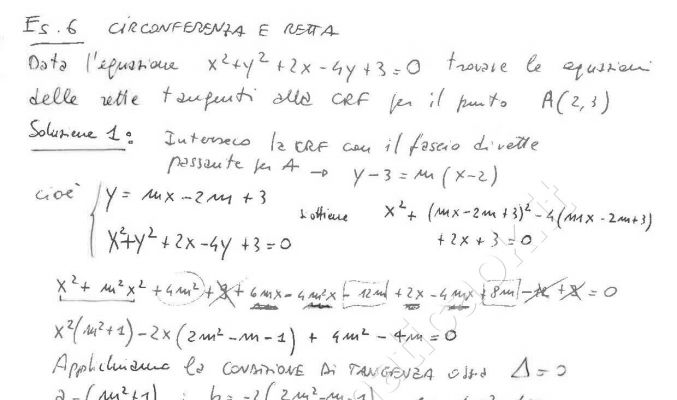 Es. 6 CIRCONFERENZA E RETTA
Data l'equazione x²+y²+2x-4y+3=0 trovare le equazioni
delle rette tangenti alla CRF per il punto A(2,3)
Soluzione 1: Interseco la CRF con il fascio di rette
passante per A → y-3=m(x-2)
cioè { y = mx-2m+3
x²+y²+2x-4y+3=0
si ottiene x²+(mx-2m+3)²-4(mx-2m+3)
+2x+3=0
x²+m²x²+4m²+9+6mx-4m²x-12m+2x-4mx+8m-12+3=0
x²(m²+1)-2x(2m²-m-1)+4m²-4m=0
Applichiamo la CONDIZIONE DI TANGENZA ossia Δ=0
a=(m²+1) ; b=-2(2m²-m-1)